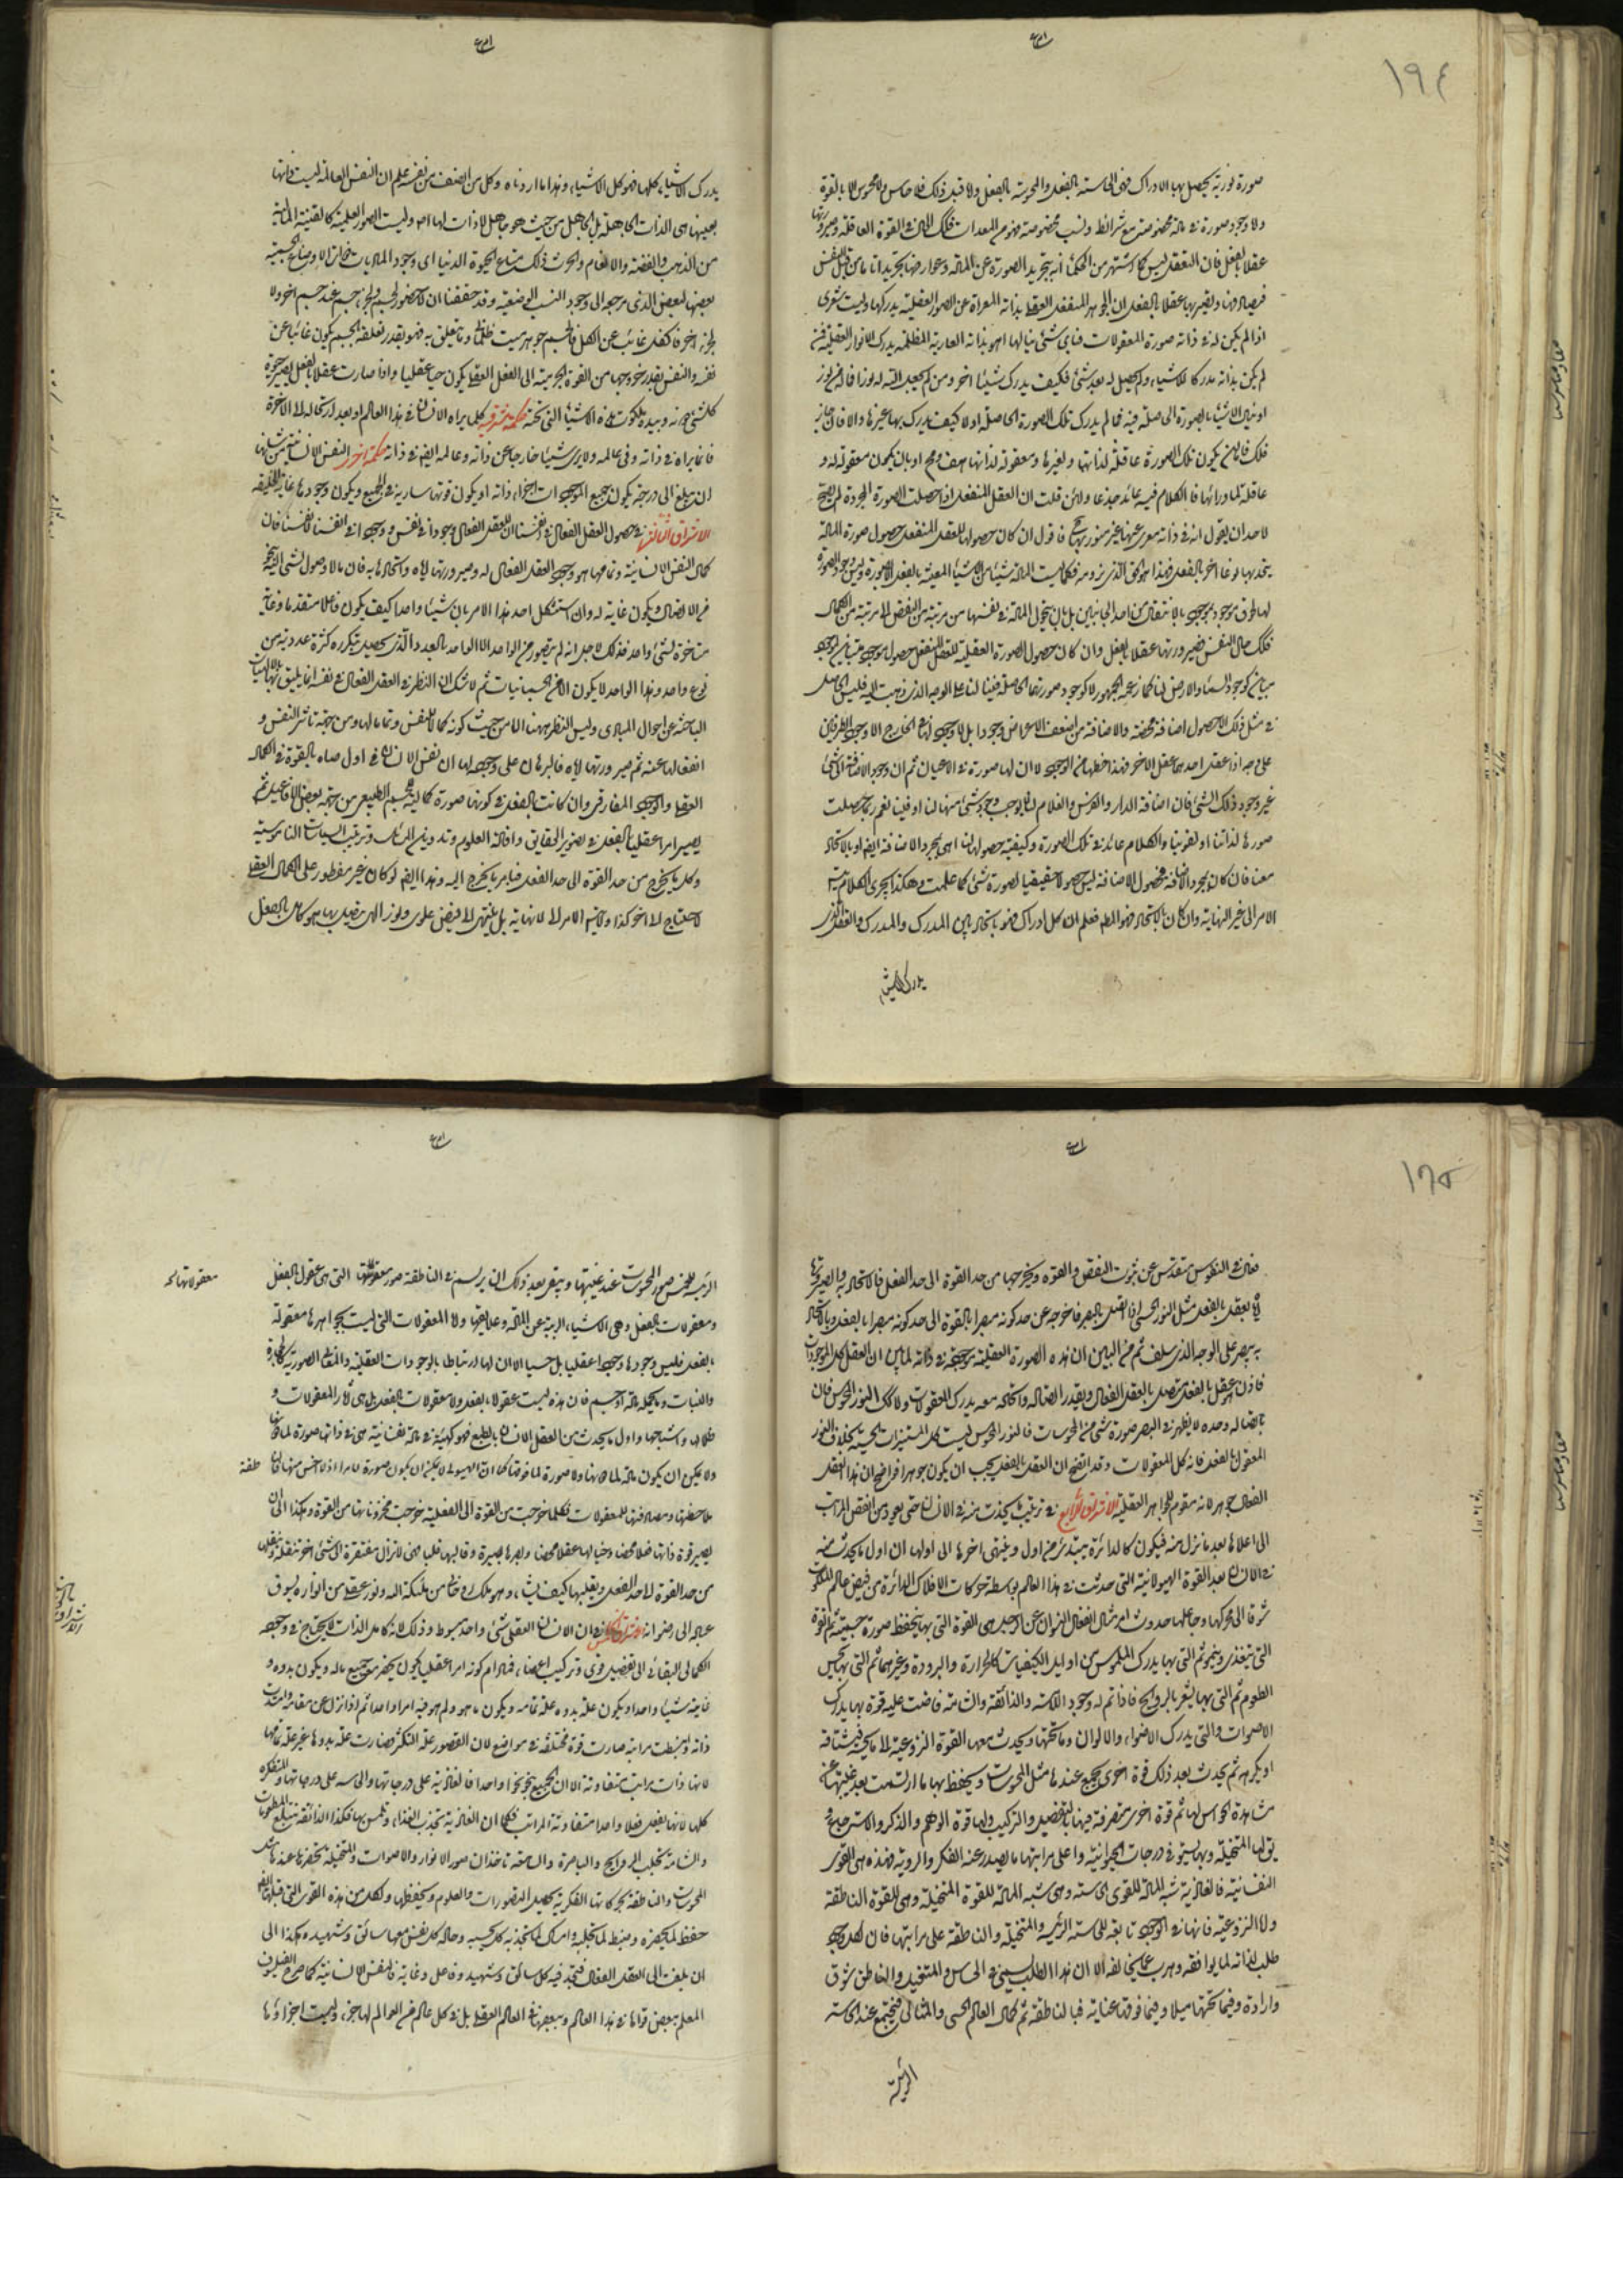 ١٩٤
صورة نورية يحصل بها الادراك فهى الحاسة بالفعل والمحسوسة بالفعل ولا قبل ذلك فلا حاس ولا محسوس الا بالقوة
ولا وجود صورة فى مادة مخصوصة مع شرائط ونسب مخصوصة فهو من المعدات فكذلك الحال فى القوة العاقلة وصيرورتها
عقلا بالفعل فان التعقل ليس كما اشتهر من الحكماء انه بتجريد الصورة عن المادة وعوارضها
اذا لم يكن له فى ذاته صورة المعقولات فباى شئ ينالها اهو بذاته العارية المظلمة يدرك الانوار العقلية فمن
لم يكن بذاته مدركا للاشياء ولم يحصل له بعد شئ فكيف يدرك شيئا اخر ومن لم يجعل الله له نورا فما له من نور
او ينال الاشياء بالصورة الحاصلة فيه فما لم يدرك تلك الصورة الحاصلة اولا كيف يدرك بها غيرها والا فان جاز
ذلك فاما بان يكون تلك الصورة عاقلة لذاتها ولغيرها ومعقولة لذاتها او بان يكون معقولة له و
عاقلة لما ورائها فالكلام فيه عائد جذعا ولئن قلت ان العقل المنفعل اذا حصلت الصورة المجردة لم يصح
لاحد ان يقول انه فى ذاته معرى عنها غير منور بها فاقول ان كان حصولها للعقل المنفعل حصول صورة للمادة
يتحد بها نوعا اخر بالفعل فهذا هو الحق الذى نرومه فكما ليست المادة شيئا من الاشياء المعينة بالفعل الا بالصورة وليس وجود الصورة
لها لحوق موجود بموجود بالانتقال من احد الجانبين بل بان يتحول المادة فى نفسها من مرتبة النقص الى مرتبة من الكمال
فكذلك حال النفس فى صيرورتها عقلا بالفعل وان كان حصول الصورة العقلية للعقل المنفعل حصول موجود مباين لموجود
مباين كوجود السماء والارض لنا
فى مثل ذلك الحصول اضافة محضة والاضافة من اضعف الاعراض وجودا بل لا وجود لها فى الخارج الا وجود الطرفين
على وجه اذا عقل احدهما عقل الاخر فهذا حظها من الوجود لا ان لها صورة فى الاعيان ثم ان وجود الاضافة الى شئ
غير وجود ذلك الشئ فان اضافة الدار والفرس والغلام لنا لا يوجب وجود شئ منها لنا او فينا نعم ربما حصلت
صورها لذاتنا او لقوينا والكلام عائد فى تلك الصورة وكيفية حصولها لنا اهى بمجرد الاضافة ايضا او بالاتحاد
معنا فان كان بمجرد الاضافة فحصول الاضافة ليس حصولا حقيقيا لصورة شئ كما علمت وهكذا يجرى الكلام
الامر الى غير النهاية وان كان بالاتحاد فهو المط فعلم ان كل ادراك فهو باتحاد بين المدرك والمدرك والعقل الذى
يدرك الاشياء
يدرك الاشياء كلها فهو كل الاشياء وهذا ما اردناه وكل من انصف من نفسه علم ان النفس العالمة ليست ذاتها
بعينها هى الذات الجاهلة بل الجاهل من حيث هو جاهل لا ذات لها اصلا وليست الصور العلمية كالقنية المالية
من الذهب والفضة والانعام والحرث ذلك متاع الحيوة الدنيا اى وجود الماديات
بعضها لبعض الذى مرجعه الى وجود النسب الوضعية وقد حققنا ان لا حضور لجسم ولا لجزء جسم عند جسم اخر ولا
لجزء اخر فالكل غائب عن الكل فالجسم جوهر ميت ظلمانى وما يتعلق به فهو بقدر تعلقه بالجسم يكون غائبا عن
نفسه والنفس بقدر خروجها من القوة الجرمية الى الفعل العقلى يكون حيا عقليا واذا صارت عقلا بالفعل يصير حيوة
كل شئ دونه وبيده ملكوت هذه الاشياء التى تحته حكمة مشرقية كلما يراه الانسان فى هذا العالم او بعد ارتحاله الى الاخرة
فانما يراه فى ذاته وفى عالمه ولا يرى شيئا خارجا عن ذاته وعالمه ايضا فى ذاته حكمة اخرى النفس الانسانية من شأنها
ان يبلغ الى درجة يكون جميع الموجودات اجزاء ذاته او يكون قوتها سارية فى الجميع ويكون وجودها غاية الخليقة
الاشراق الثالث فى حصول العقل الفعال فى انفسنا ان للعقل الفعال وجودا فى نفسه ووجودا فى انفسنا لانفسنا فان
كمال النفس الانسانية وتمامها هو وجود العقل الفعال له وصيرورتها اياه واتحادها به فان ما لا وصول لشئ اليه
نوع من الاتصال لا يكون غاية له ولو استشكل احد هذا الامر بان شيئا واحدا كيف يكون فاعلا متقدما وغاية
متاخرة لشئ واحد فذلك لاجل انه لم يتصور من الواحد الا الواحد بالعدد الذى يحصل بتكرره كثرة عددية من
نوع واحد وهذا الواحد لا يكون الا فى الجسمانيات ثم لا شك ان النظر فى العقل الفعال فى نفسه انما يليق بالالهيات
الباحثة عن احوال المبادى وليس النظر ههنا الا من حيث كونه كمالا للنفس وتماما لها ومن جهة تاثر النفس و
انفعالها عنه ثم صيرورتها اياه فالبرهان على وجوده لها ان نفس الانسان فى اول صباه بالقوة فى الكمال
العقلى والوجود المفارقى وان كانت بالفعل فى كونها صورة كمالية لجسم الطبيعى من جهة بعض الافاعيل ثم
يصير امرا عقليا بالفعل فى تصوير الحقايق وافادة العلوم وتدوين المسائل وترتيب السياسات الناموسية
وكل ما يخرج من حد القوة الى حد الفعل فبامر ما يخرج اليه وهذا ايضا لو كان غير مفطور على الكمال العقلى
لاحتاج الى اخر كذا ولا يتم الامر الا لا نهاية بل ينتهى الى فيض علوى ونور الهى متصل بها هو كامل بالفعل
١٩٥
فعال فى النفوس متقدس عن شوب النقص والقوة ويخرجها من حد القوة الى حد الفعل فالاتحاد به والصيرورة
اياه بعقل بالفعل مثل النور الحسى اذا اتصل بالبصر فاخرجه عن حد كونه مبصرا بالقوة الى حد كونه مبصرا بالفعل وبالاتحاد
به يبصر على الوجه الذى سلف ثم من البين ان هذه الصورة العقلية
فاذن العقل بالفعل متصل بالعقل الفعال وبقدر اتصاله واتحاده معه يدرك المعقولات ولا كذلك النور المحسوس فان
باتصاله وحده لا يظهر فى البصر صورة شئ من المحسوسات فالنور المحسوس ليست كل المستنيرات الحسية بخلاف النور
المعقول بالفعل فانه كل المعقولات وقد اتضح ان العقل بالفعل يجب ان يكون جوهرا فواضح ان هذا العقل
الفعال جوهر لانه مقوم للجواهر العقلية الاشراق الرابع فى ترتيب ما يحدث منه فى الانسان حتى يعود من انقص المراتب
الى اعلاها بعد ما نزل منه فيكون كالدائرة يبتدئ من اول وينتهى اخرها الى اولها ان اول ما يحدث منه
فى الانسان بعد القوة الهيولانية التى حدثت فى هذا العالم بواسطة حركات الافلاك الدائرة من فيض عالم الملكوت
شوقا الى محركها وجاعلها حدوث هى القوة التى بها ينحفظ صورة جسمية ثم القوة
التى تتغذى وينمو ثم التى بها يدرك الملموس من اوايل الكيفيات كالحرارة والبرودة وغيرهما ثم التى بها يحس
الطعوم ثم التى بها يشعر بالروايح فاذا تم له وجود اللامسة والذائقة والشامة فاضت عليه قوة بها يدرك
الاصوات والتى يدرك الاضواء والالوان وما تحتها ويحدث معها القوة النزوعية الى ما يحسه فيشتاقه
او يكرهه ثم يحدث بعد ذلك قوة اخرى يجمع عندها مثل المحسوسات ويحفظ بها ما ارتسمت بعد غيبتها عن
مشاهدة الحواس لها ثم قوة اخرى متصرفة فيها بالتفصيل والتركيب ولها قوة الوهم والذكر والاسترجاع و
يق لها المتخيلة وبها يستوفى درجات الحيوانية واعلى مراتبها ما يصدر عنه الفكر والروية فهذه هى القوى
النفسانية فالغاذية شبه المادة للقوى الحاسة وهى شبه المادة للقوة المتخيلة وهى للقوة الناطقة
واما النزوعية فانها فى الوجود تابعة للحاسة الرئيسة والمتخيلة والناطقة على مراتبها فان لكل وجود
طلب لذاته لما يوافقه وهرب عما يخالفه الا ان هذا الطلب يسمى فى الحاس والمتخيل والناطق شوق
وارادة وفيما تحتها ميلا وفيما فوقها عناية فبالناطقة تم كمال العالم الحسى والمثالى فيجتمع عند الحاسة
الرئيسة
الرئيسة للحس صور المحسوسات عند غيبتها ويبقى بعد ذلك ان يرتسم فى الناطقة صور معقولاتها التى هى عقول بالفعل
معقولاتها
ومعقولات بالفعل وهى الاشياء البرية عن المادة وعلايقها واما المعقولات التى ليست بجواهرها معقولة
بالفعل فليس وجودها وجودا عقليا بل حسيا الا ان لها ارتباطا بالوجودات العقلية والمثل الصورية كالحجارة
والنبات وما يحله مادة او جسم فان هذه ليست عقولا بالفعل ولا معقولات بالفعل بل هى اثار المعقولات و
ظلالها واشباحها واول ما يحدث من العقل الانسانى بالطبع فهو كهيئة فى مادة نفسانية هى فى ذاتها صورة لما دونها
ولا يمكن ان يكون مادة لما دونها ولا صورة لما فوقها كما ان الهيولى لا يمكن ان يكون صورة لامر اذ لا اخس منها
ملاحظتها ومصادفتها للمعقولات فكلما خرجت من القوة الى الفعلية خرجت مخزوناتها من القوة وهكذا الى ان
يصير قوة ذاتها فعلا محضا وخيالها عقلا محضا وبصرها بصيرة وقالبها قلبا هى لا تزال مفتقرة الى شئ اخر
من حد القوة الى حد الفعل ويقلبها كيف يشاء وهو ملك روحانى من ملئكة الله ونور عقلى من انواره يسوق
عباده الى رضوانه الاشراق الخامس فى ان الانسان العقلى شئ واحد مبسوط وذلك لانه كامل الذات لا يحتاج فى وجوده
الكمالى البقائى الى تفصيل قوى وتركيب اعضاء فمادام كونه امرا عقليا يكون بحضرة جميع ماله ويكون بدوه و
غايته شيئا واحدا ويكون علة بدوه علة تمامه ويكون ما هو ولم هو فيه امرا واحدا ثم اذا نزل عن مقامه
ذاته وانبسطت مراتبه صارت قوة مختلفة فى مواضع لان القصور علة التكثر فصارت علة بدوها غير علة تمامها
لانها ذات مراتب متفاوتة الا ان الجميع ينحو نحوا واحدا فالغاذية على درجاتها والحاسة على درجاتها والمتفكرة
كلها لانها يفعل فعلا واحدا متفاوتة المراتب فكما ان الغاذية تجذب الغذاء وتلمس بها فكذا الذائقة
والشامة تجلب الروايح والباصرة والسامعة تاخذان صور الانوار والاصوات والمتخيلة تحضرها عندها
المحسوسات والناطقة بحركاتها الفكرية يحصل التصورات والعلوم ويحفظها ولكل من هذه القوى التى قبلها
حفظ لما يحضره وضبط لما يجلبه وامساك لما يجذبه كل بحسبه وحاله كل نفس معها سائق وشهيد وهكذا الى
ان بلغت الى العقل الفعال فتجد فيه كل سائق وشهيد وفاعل وغاية فالنفس الانسانية كما صرح الفيلسوف
المعلم بعض قواها فى هذا العالم وبعضها فى العالم العقلى بل فى كل عالم من العوالم لها جزء وليست اجزاؤها